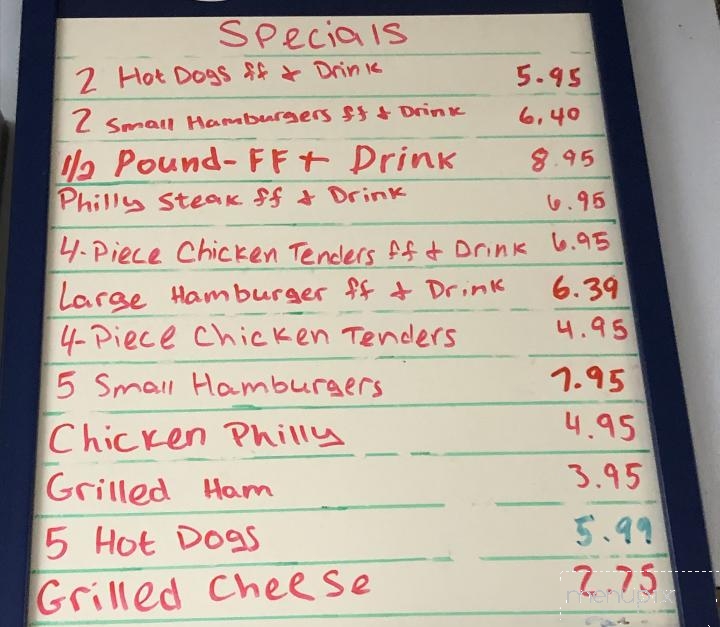 Specials
2 Hot Dogs ff & Drink 5.95
2 Small Hamburgers ff & Drink 6.40
1/2 Pound-FF + Drink 8.95
Philly Steak ff & Drink 6.95
4-Piece Chicken Tenders ff & Drink 6.95
Large Hamburger ff & Drink 6.39
4-Piece Chicken Tenders 4.95
5 Small Hamburgers 7.95
Chicken Philly 4.95
Grilled Ham 3.95
5 Hot Dogs 5.99
Grilled Cheese